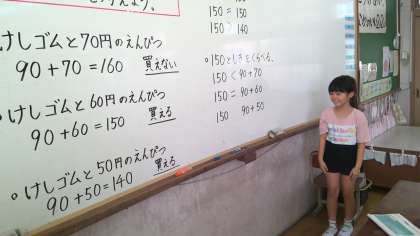 けしゴムと70円のえんぴつ
90+70=160 買えない
。けしゴムと60円のえんぴつ
90+60=150 買える
。けしゴムと50円のえんぴつ
90+50=140 買える
150=150
150>140
。150としきをくらべる。
150<90+70
150=90+60
150 90+50